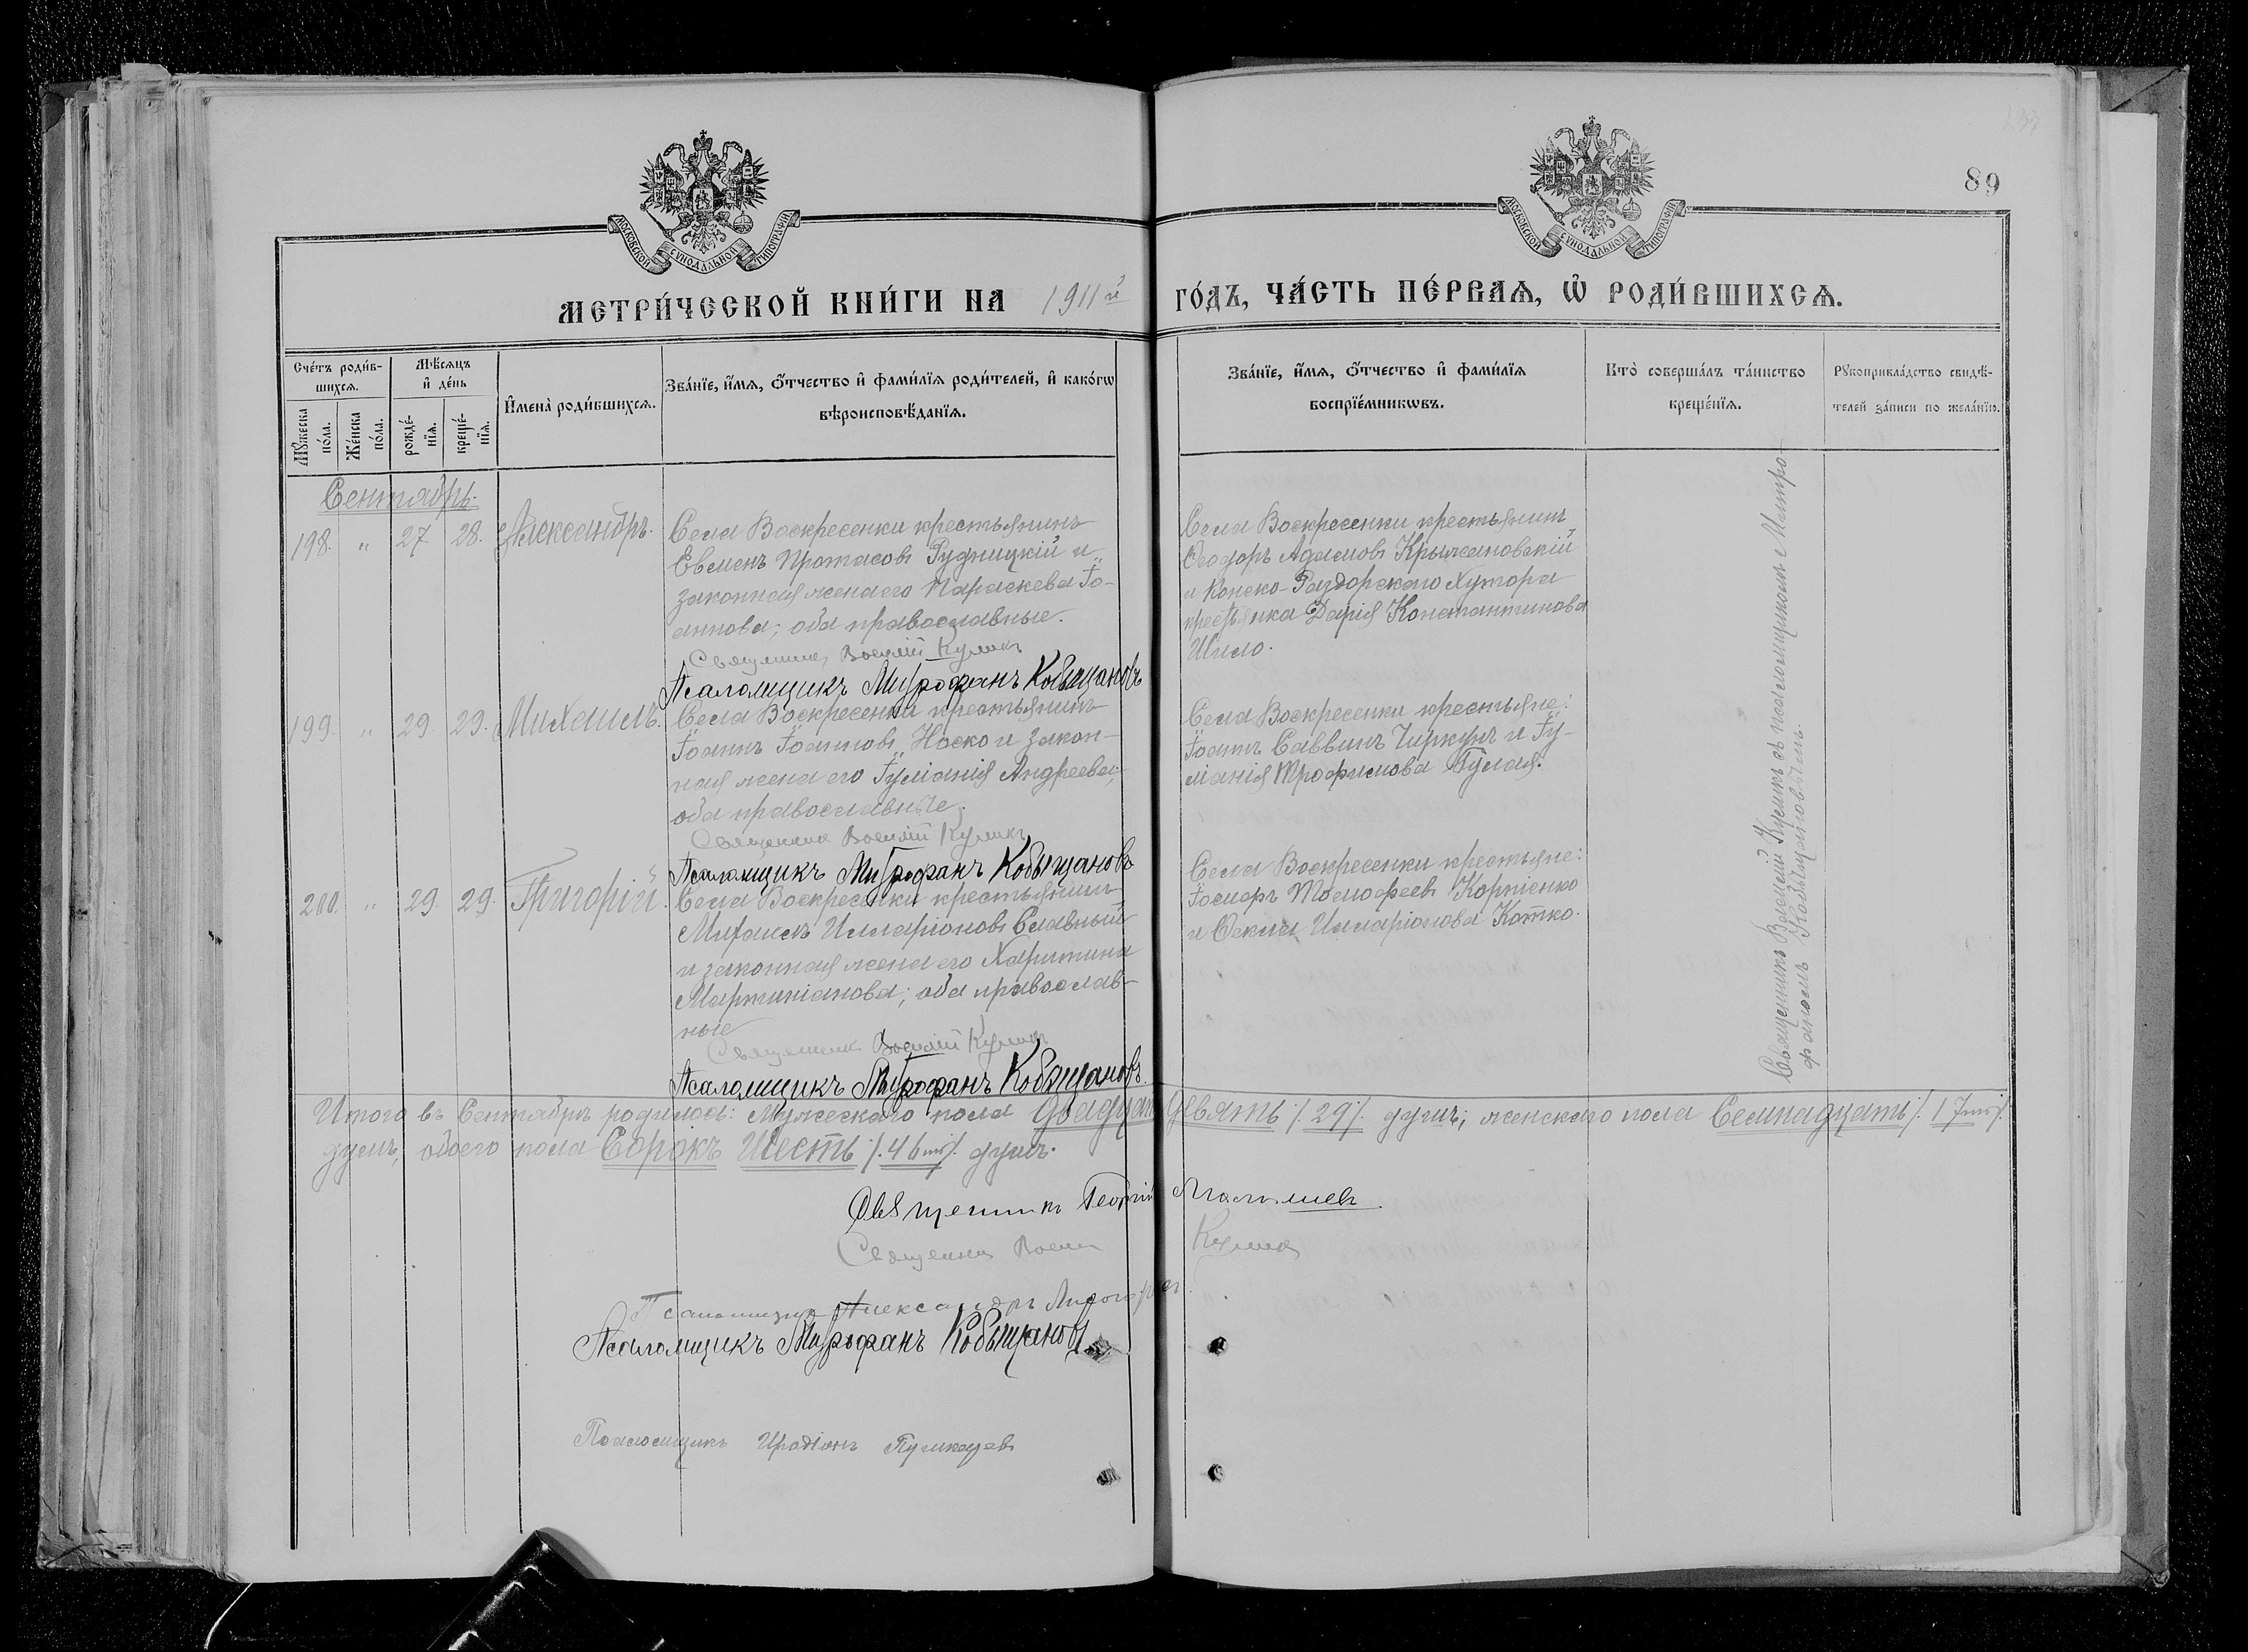 89
МОСКОВСКОЙ СѴНОДАЛЬНОЙ ТИПОГРАФІИ
МОСКОВСКОЙ СѴНОДАЛЬНОЙ ТИПОГРАФІИ
МЕТРИ́ЧЕСКОЙ КНИ́ГИ НА 1911й ГО́ДЪ, ЧА́СТЬ ПЕ́РВАѦ, Ѡ҆ РОДИ́ВШИХСѦ.
Сче́тъ роди́в-
шихсѧ.
Мꙋ́жеска по́ла.
Же́нска по́ла.
Мѣ́сѧцъ
и҆ де́нь
рожде́-
нїѧ.
креще́-
нїѧ.
И҆мена̀ роди́вшихсѧ.
Зва́нїе, и҆́мѧ, ѻ҆́тчество и҆ фами́лїѧ роди́телей, и҆ како́гѡ
вѣроисповѣ́данїѧ.
Зва́нїе, и҆́мѧ, ѻ҆́тчество и҆ фами́лїѧ
воспрїе́мникѡвъ.
Кто̀ соверша́лъ та́инство
креще́нїѧ.
Рꙋкоприкла́дство свидѣ́-
телей за́писи по жела́нїю.
Сентябрь.
198. " 27. 28. Александръ.
Села Воскресенки крестьянинъ
Евменъ Протасовъ Рудницкій и
законная жена его Параскева Іо-
аннова; оба православные.
Священникъ Василій Куликъ
Псаломщикъ Митрофанъ Кобыщановъ
Села Воскресенки крестьянинъ
Ѳеодоръ Адамовъ Крыжановскій
и Конско-Раздорскаго Хутора
крестьянка Дарія Константинова
Шило.
199. " 29. 29. Михаилъ.
Села Воскресенки крестьянинъ
Іоаннъ Іоанновъ Носко и закон-
ная жена его Іуліанія Андреева;
оба православные.
Священникъ Василій Куликъ
Псаломщикъ Митрофанъ Кобыщановъ
Села Воскресенки крестьяне:
Іоаннъ Саввинъ Чиркунъ и Іу-
ліанія Трофимова Гулая.
200. " 29. 29. Григорій.
Села Воскресенки крестьянинъ
Михаилъ Илларіоновъ Славный
и законная жена его Харитина
Мартиніанова; оба православ-
ные
Священникъ Василій Куликъ
Псаломщикъ Митрофанъ Кобыщановъ
Села Воскресенки крестьяне:
Іосифъ Тимофеевъ Корніенко
и Ѳекла Иларіонова Котко.
Священникъ Василій Куликъ съ псаломщикомъ Митро-
фаномъ Кобыщановымъ.
Итого въ Сентябрѣ родилось: Мужескаго пола Двадцать Девять /.29/. душъ; женскаго пола Семнадцать /.17ть/.
душъ, обоего пола Сорокъ Шесть /.46ть/. душъ.
Священникъ Георгій
Священникъ Василій Куликъ
Псаломщикъ Александръ
Псаломщикъ Митрофанъ Кобыщановъ
Псаломщикъ Иродіонъ Пушкаревъ